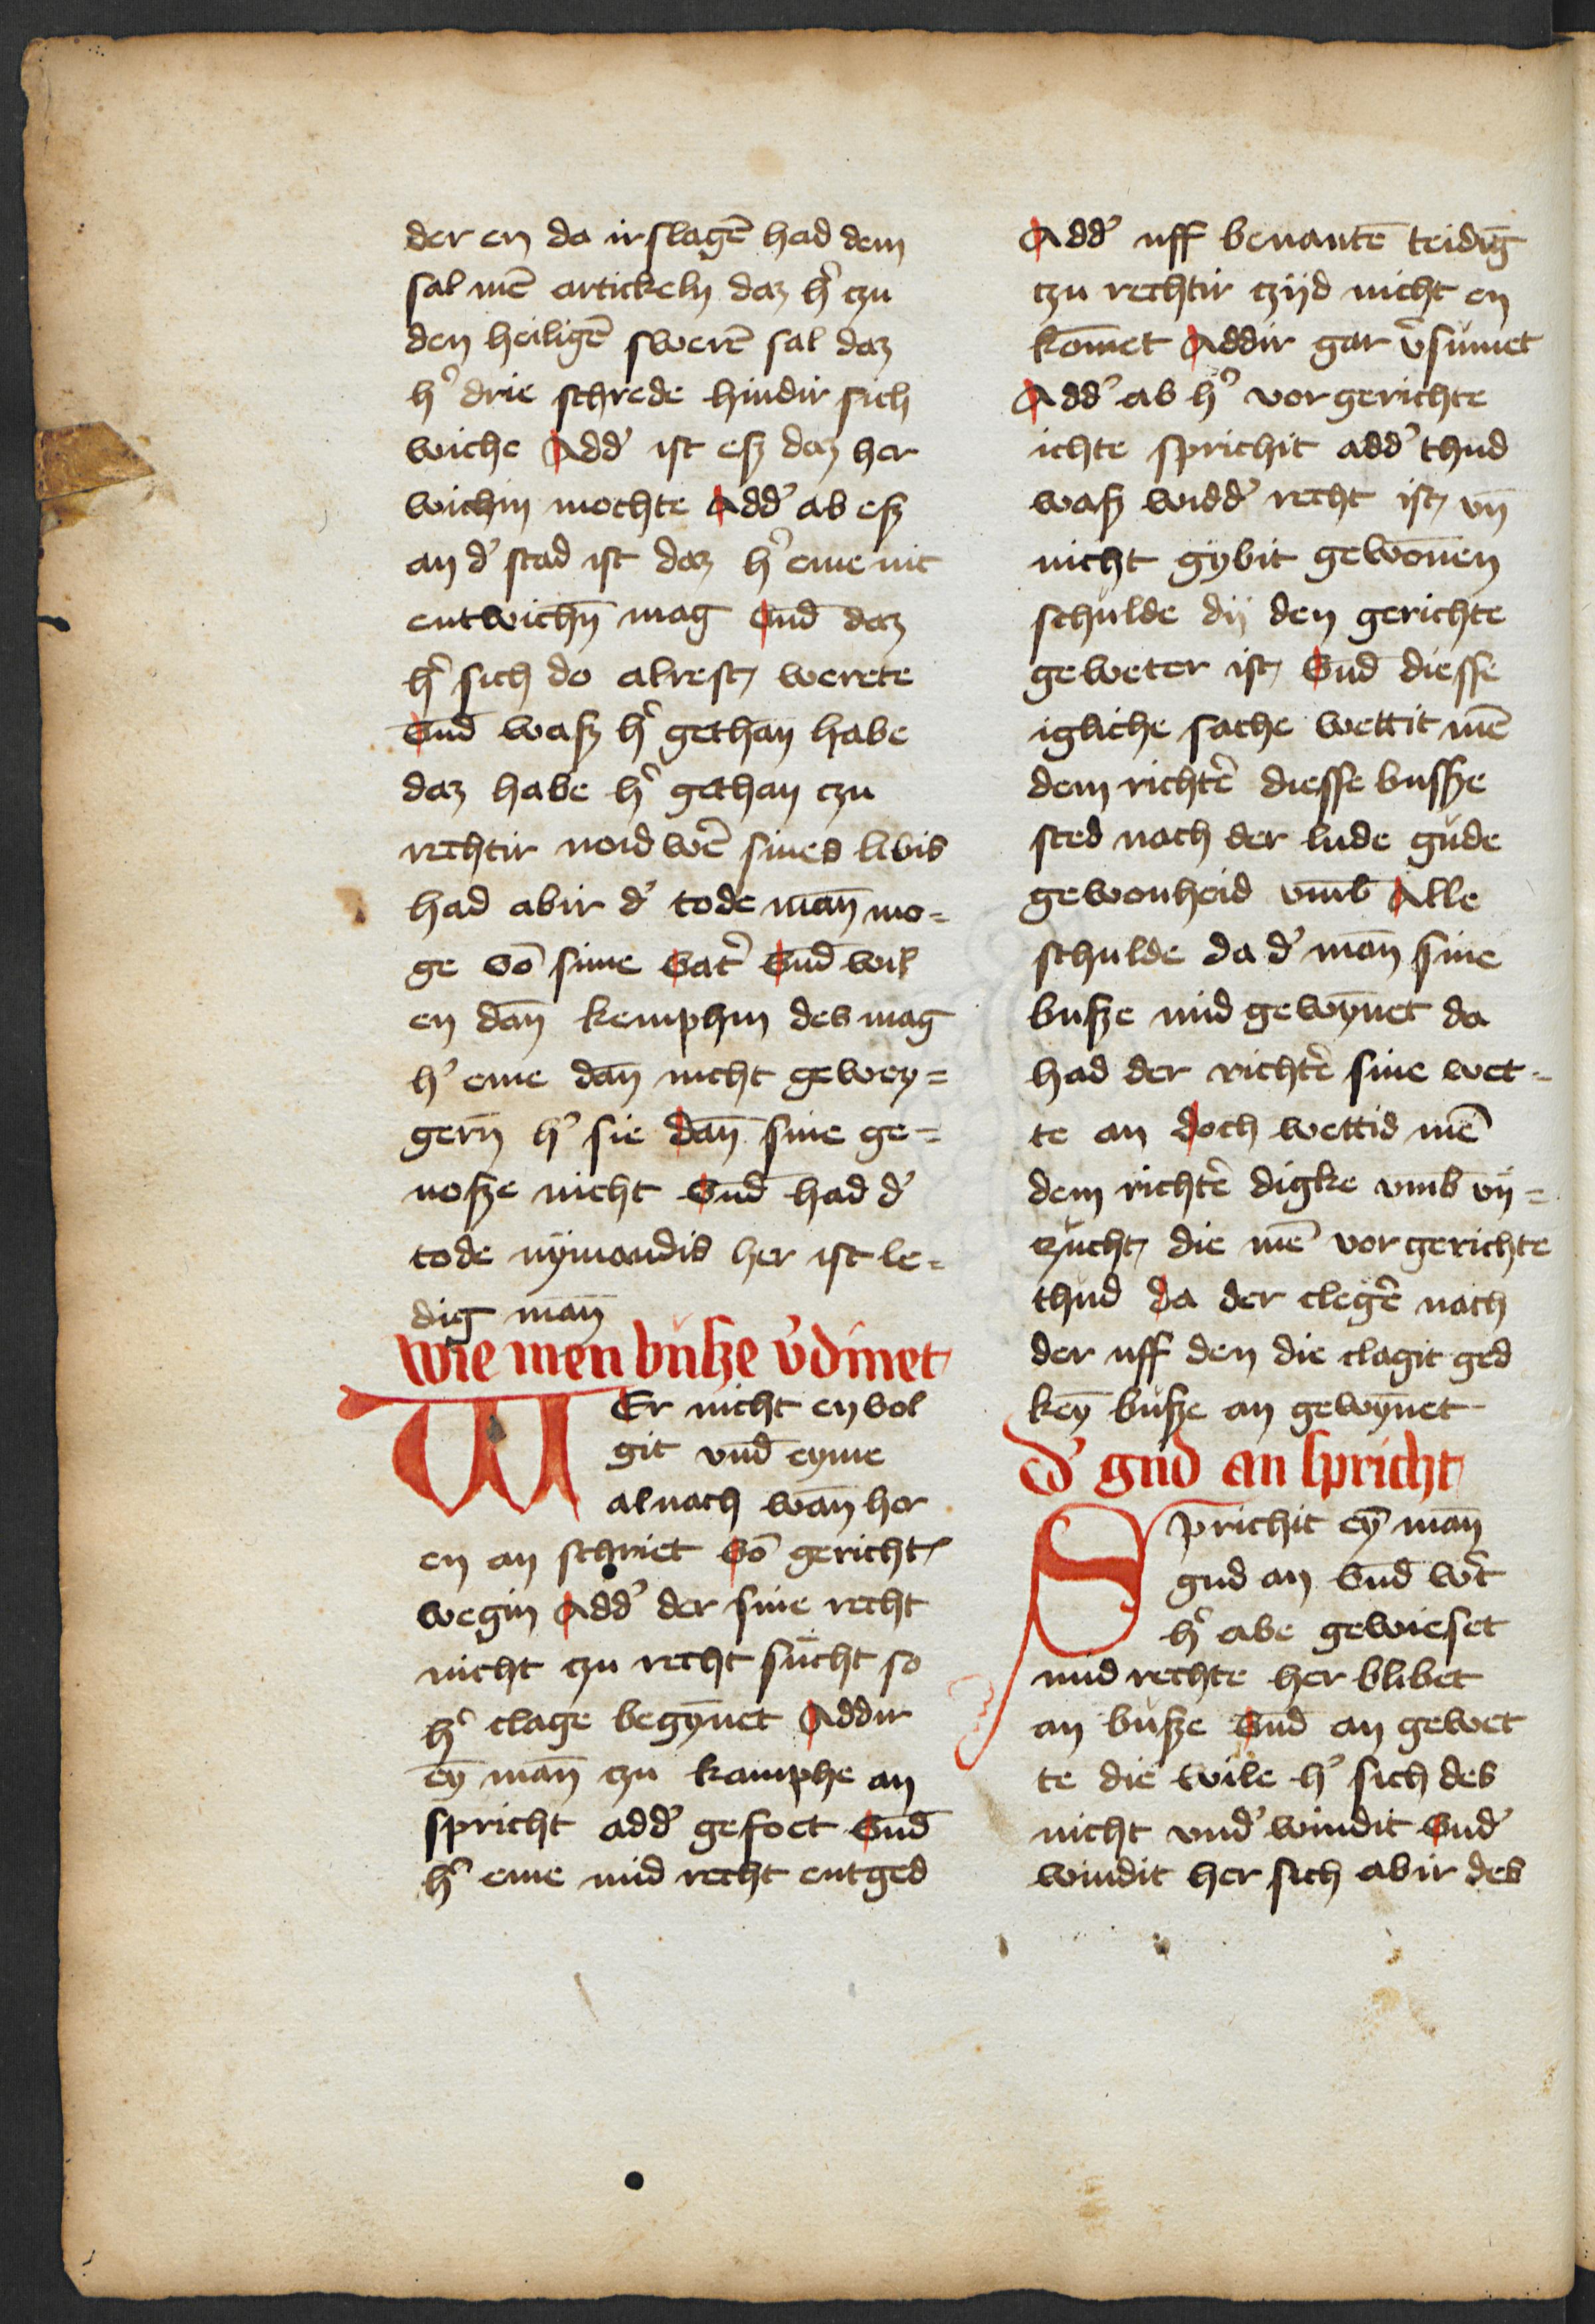 der en da ir slagē had dem
sal mē artickeln daz h' czu
den heiligē swerē sal daz
h' drie schrede hindir sich
wiche Add' ist esz daz her
wichin mochte Add' ab esz
an d' stad ist daz h' eme nit
entwichn̄ mag Vnd̄ daz
h' sich do alrest werete
Vnd̄ wasz h' gethan habe
daz habe h' gethan czu
rechtir noid wē sines libis
had abir d' tode man̄ mo=
ge vō sime vat' Vnd̄ wil
en dan̄ kemphin des mag
h' eme dan̄ nicht gewey=
gern̄ h' sie dan̄ sine ge=
nosze nicht Vnd̄ had d'
tode nymandis her ist le=
dig man̄
wie men busze v'dinet
WEr nicht en vol
git vnd̄ eyme
al nach wan̄ her
en an schriet vō gericht
wegin Add' der sine recht
nicht czu recht sucht so
h' clage begȳnet Addir
eȳ man̄ czu kamphe an
spricht add' gefoet Vnd̄
h' eme mid recht entged
Add' uff benantē teidīg
czu rechtir czijd nicht en
kōmet Addir gar v'sumet
Add' ab h' vor gerichte
ichte sprichit add' thud
wasz widd' recht ist vn̄
nicht gybit gewōnen
schulde dij den gerichte
geweter ist Vnd̄ diesse
igliche sache wettit mē
dem richtē diesse bussze
sted nach der lude gude
gewonheid vmb̄ Alle
schulde da d' man̄ sine
busze mid gewȳnet da
had der richtē sine wet=
te an doch wettid mē
dem richtē digke vmb̄ vn=
zucht die mē vor gerichte
thud da der clegē nach
der uff den die clagit ged
keȳ busze an gewȳnet
d' gud an spricht
Sprichit eȳ man̄
gud an Vnd̄ w't
h' abe gewieset
mid rechte her blibet
an busze Vnd̄ an gewet
te die wile h' sich des
nicht vnd' windit Vnd'
windit her sich abir des